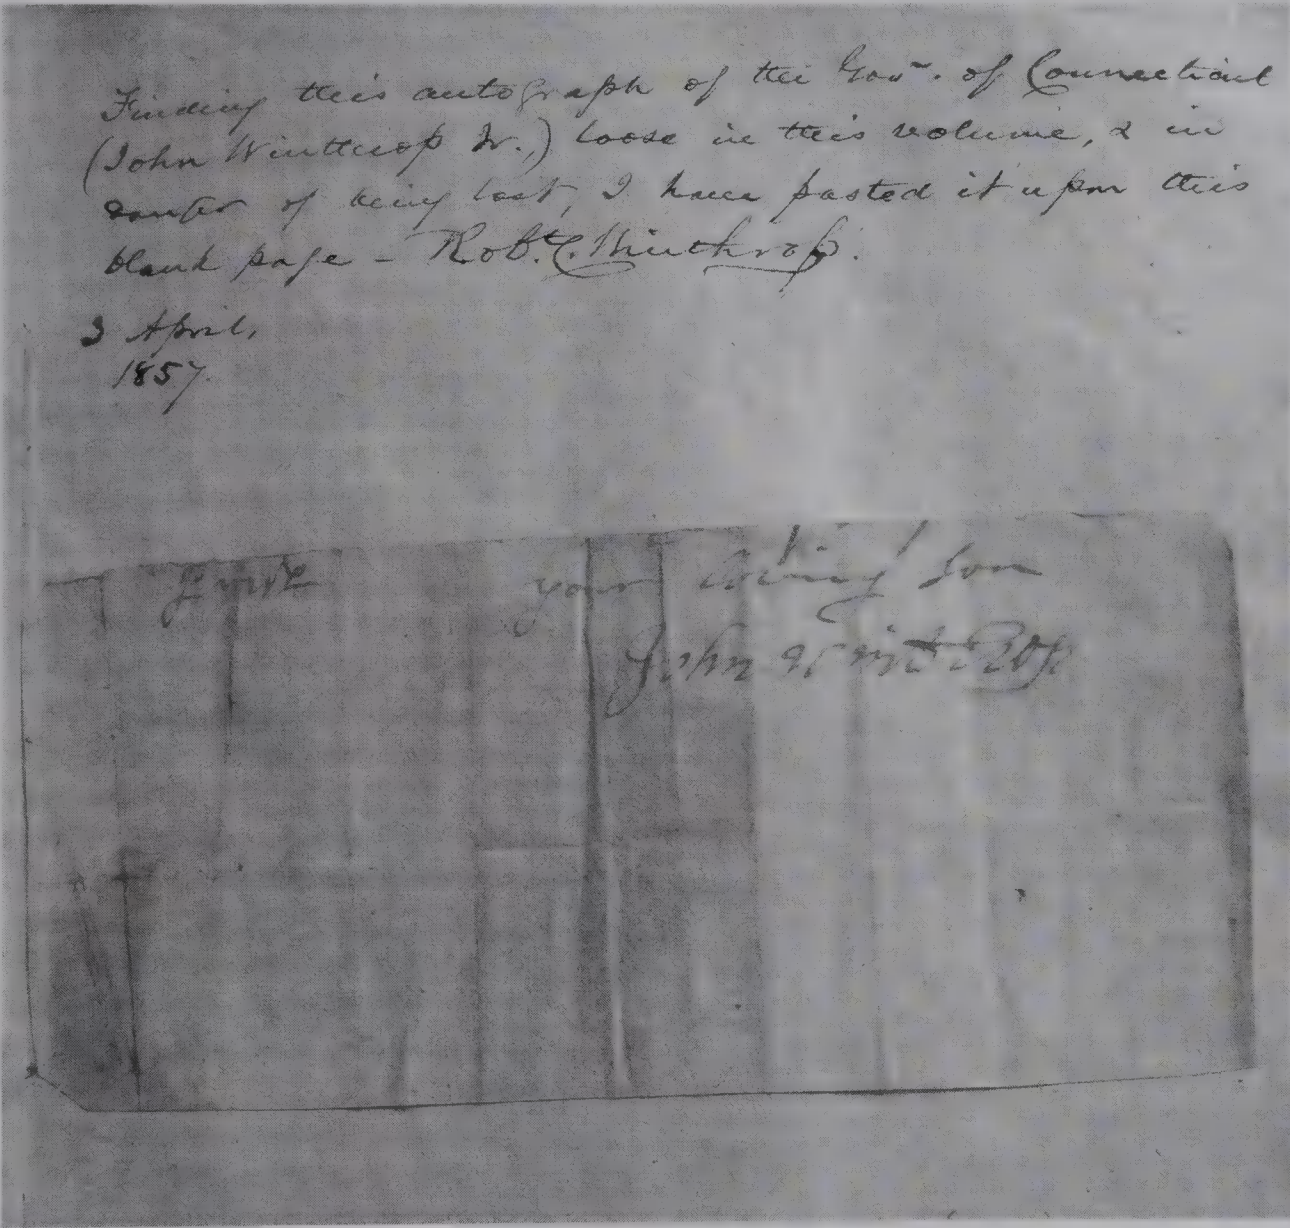 Finding this autograph of the Govr. of Connecticut
(John Winthrop Jr.,) loose in this volume, & in
danger of being lost, I have pasted it upon this
blank page - Robt. C. Winthrop.
3 April,
1857.
your loving son
John Winthrop